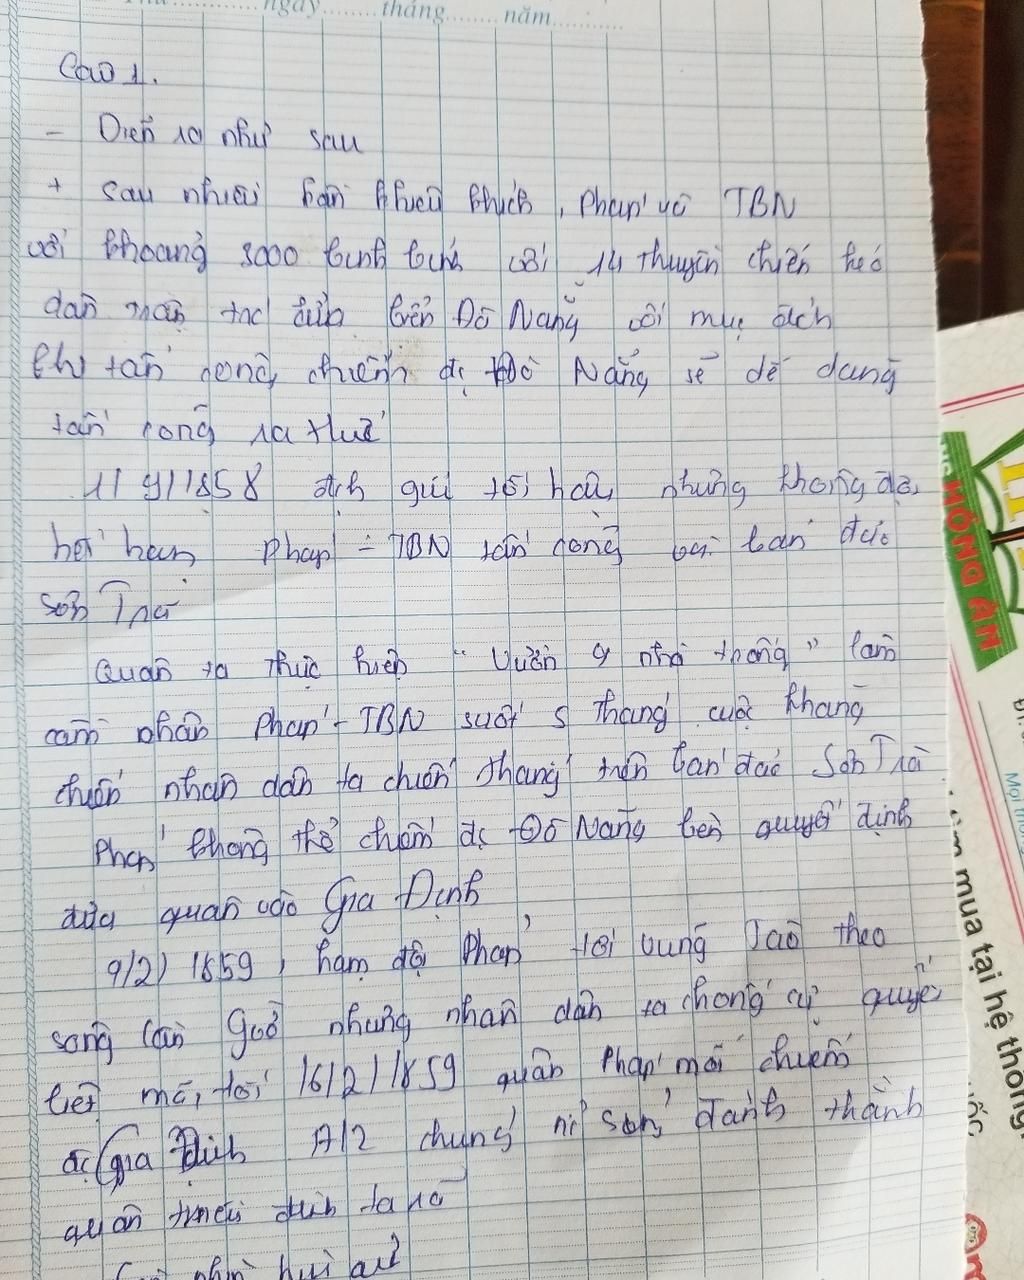 ngày........ tháng........ năm............
Câu 1.
- Diễn ra như sau
+ Sau nhiều lần khiêu khích, Pháp và TBN
với khoảng 3000 binh lính với 14 thuyền chiến kéo
dàn trận trước cửa biển Đà Nẵng với mục đích
khi tấn công, chiếm đc Đà Nẵng sẽ dễ dàng
tấn công ra Huế
1/9/1858 địch gửi tối hậu nhưng không đợi
hết hạn Pháp - TBN tấn công bán đảo
Sơn Trà
Quân ta thực hiện "Vườn ko nhà trống" làm
cầm chân Pháp - TBN suốt 5 tháng cuộc kháng
chiến nhân dân ta chiến thắng trên bán đảo Sơn Trà
Pháp không thể chiếm đc Đà Nẵng bèn quyết định
đưa quân vào Gia Định
9/2/1859, hạm đội Pháp tới Vũng Tàu theo
sông Cần Giờ nhưng nhân dân ta chống cự quyết
liệt mãi tới 16/2/1859 quân Pháp mới chiếm
đc Gia Định 17/2 chúng nổ súng đánh thành
quân triều đình tan rã